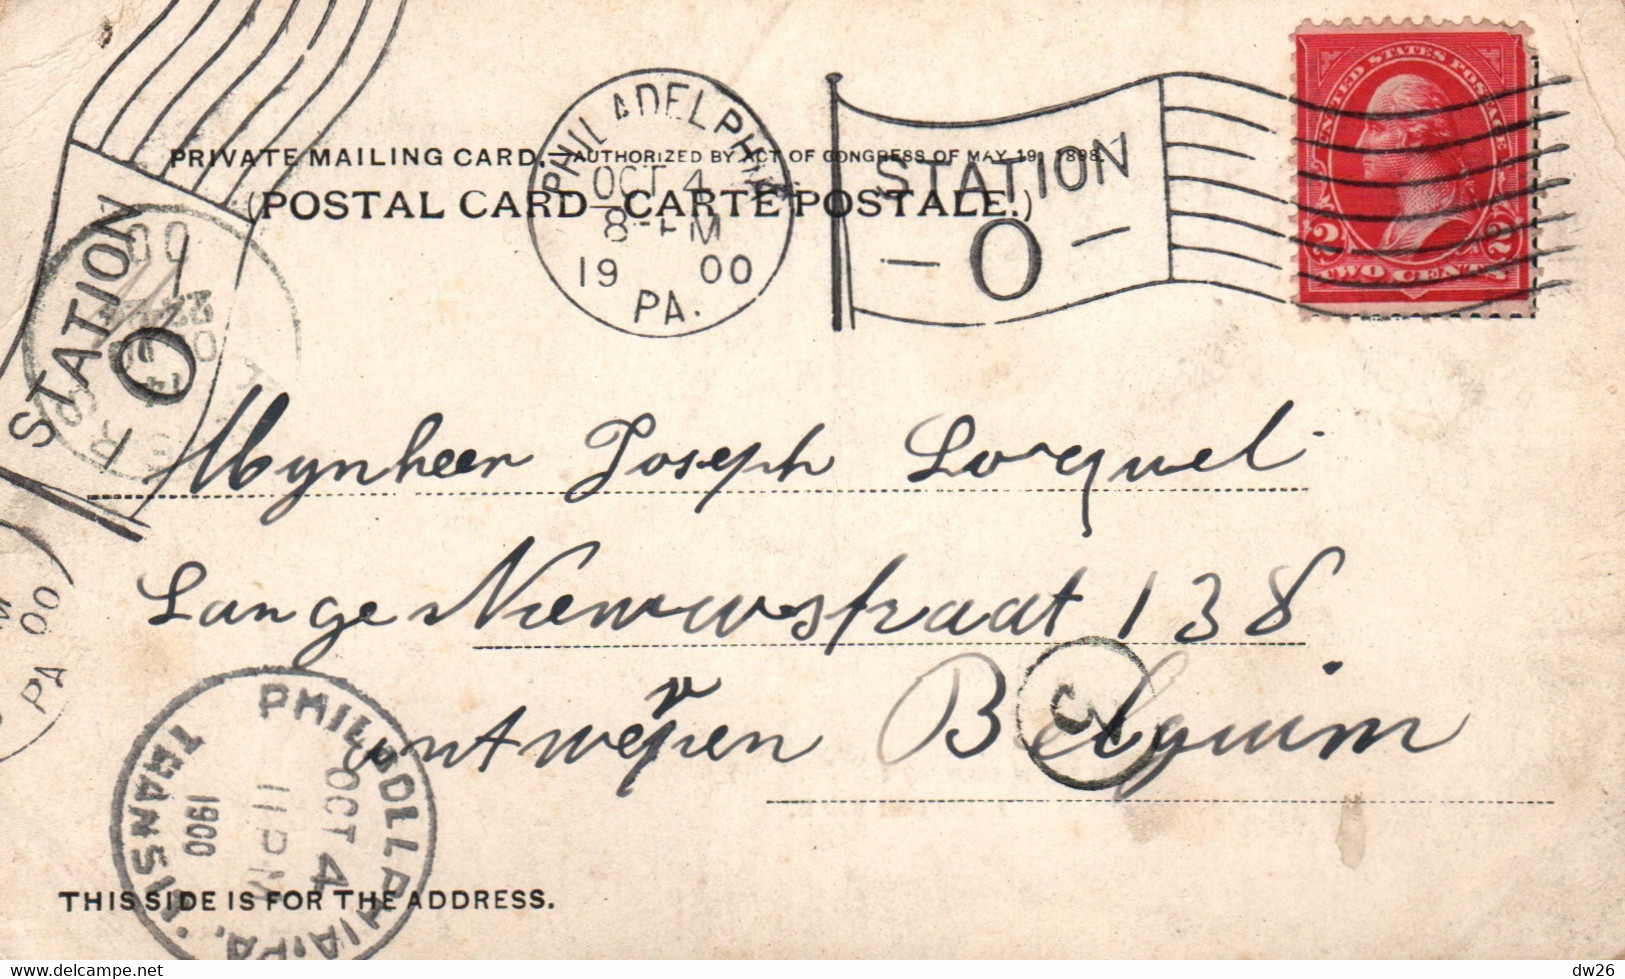 UNITED STATES POSTAGE
2 2
TWO CENTS
PHILADELPHIA
OCT 4
8 - PM
19 00
PA.
STATION
- O -
PRIVATE MAILING CARD.—AUTHORIZED BY ACT OF CONGRESS OF MAY 19, 1898.
(POSTAL CARD—CARTE POSTALE.)
STATION
O
00
Mynheer Joseph Locquel
Lange Nieuwstraat 138
Antwerpen Belguim
PA 00
PHILADELPHIA, PA.
OCT 4
11 PM
1900
TRANSIT
THIS SIDE IS FOR THE ADDRESS.
Delcampe.net
dw26